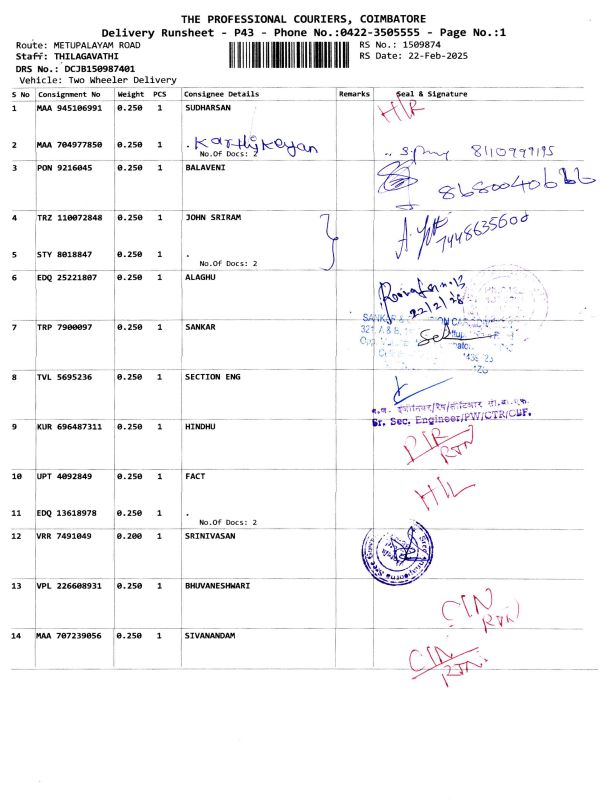 THE PROFESSIONAL COURIERS, COIMBATORE
Delivery Runsheet - P43 - Phone No.:0422-3505555 - Page No.:1
Route: METUPALAYAM ROAD RS No.: 1509874
Staff: THILAGAVATHI RS Date: 22-Feb-2025
DRS No.: DCJB150987401
Vehicle: Two Wheeler Delivery
S No Consignment No Weight PCS Consignee Details Remarks Seal & Signature
1 MAA 945106991 0.250 1 SUDHARSAN
2 MAA 704977850 0.250 1 . Karthikeyan
No.Of Docs: 2 8110999195
3 PON 9216045 0.250 1 BALAVENI
4 TRZ 110072848 0.250 1 JOHN SRIRAM
7448635608
5 STY 8018847 0.250 1 .
No.Of Docs: 2
6 EDQ 25221807 0.250 1 ALAGHU
7 TRP 7900097 0.250 1 SANKAR
8 TVL 5695236 0.250 1 SECTION ENG
Sr. Sec. Engineer/PW/CTR/CBF.
9 KUR 696487311 0.250 1 HINDHU
RTN
10 UPT 4092849 0.250 1 FACT
H/L
11 EDQ 13618978 0.250 1 .
No.Of Docs: 2
12 VRR 7491049 0.200 1 SRINIVASAN
13 VPL 226608931 0.250 1 BHUVANESHWARI
C/N
RTN
14 MAA 707239056 0.250 1 SIVANANDAM
C/N
RTN